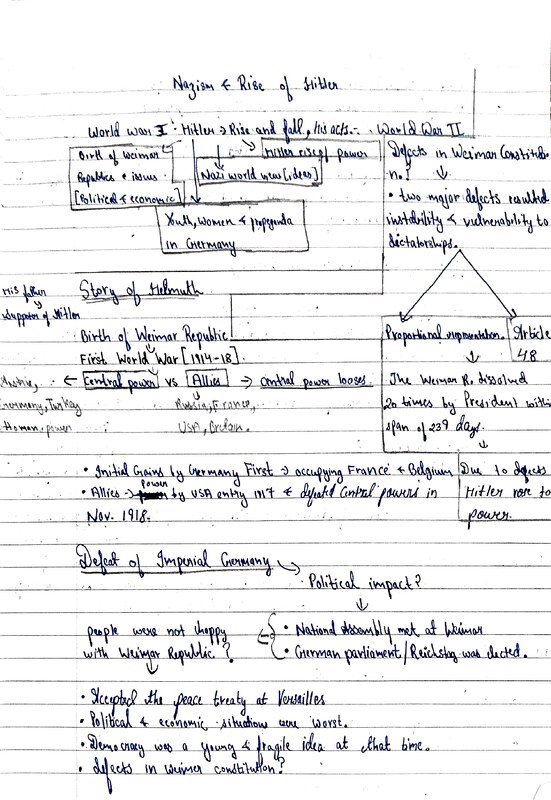 Nazism & Rise of Hitler
World War I - Hitler → Rise and fall, his acts. - World War II
Birth of Weimar
Republics & issues
[Political & economic]
Hitler rise of power
Nazi world view [ideas]
Youth, Women & propoganda
in Germany
Defects in Weimar Constitutio
n.?
• two major defects resulted
instability & vulnerability to
dictatorships.
Proportional representation.
The Weimar R. dissolved
20 times by President within
span of 239 days.
Article
48
Due to defects
Hitler rose to
power.
His father
Supporter of Hitler
Story of Helmuth
Birth of Weimar Republic
First World War [1914-18].
Central power vs Allies → Central power looses.
Austria,
Germany, Turkey
Ottoman power
Russia, France,
USA, Britain.
• Initial Gains by Germany First → occupying France & Belgium
• Allies → power by USA entry 1917 & defeated Central powers in
Nov. 1918.
Defeat of Imperial Germany
Political impact?
• National Assembly met at Weimar
• German parliament/Reichstag was elected.
people were not happy
with Weimar Republic?
• Accepted the peace treaty at Versailles
• Political & economic situations were worst.
• Democracy was a young & fragile idea at that time.
• defects in weimer constitution?